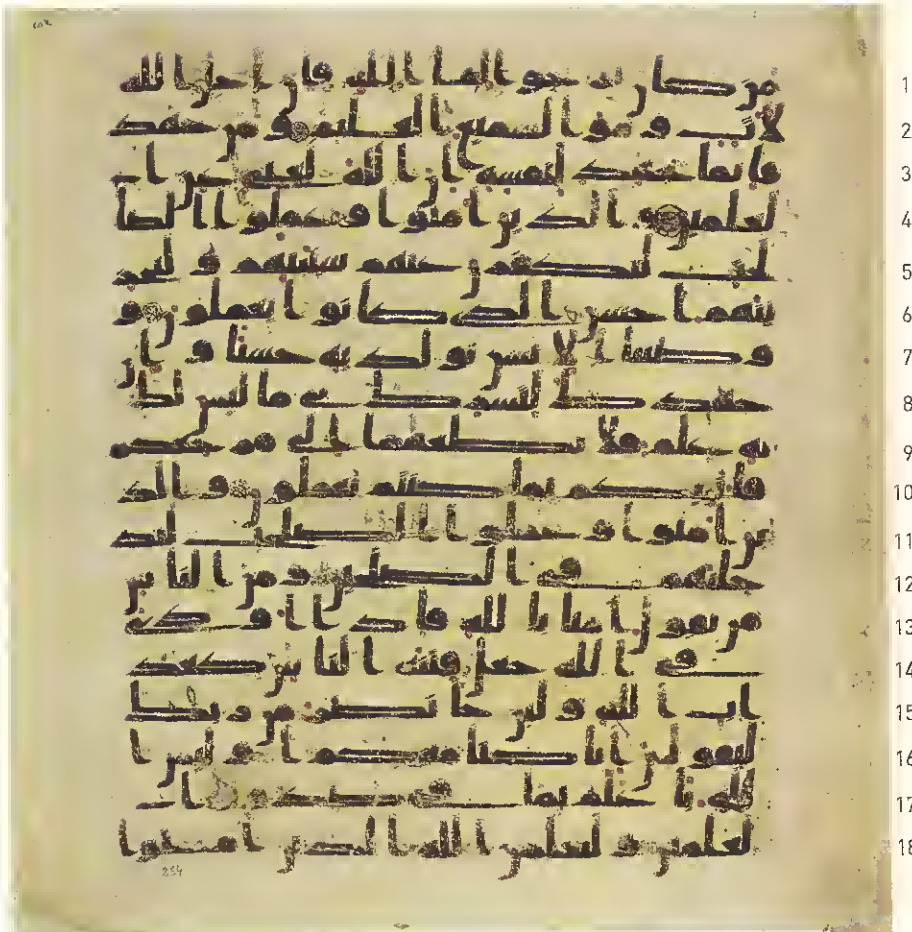 من كان يرجوا لقا الله فان اجل الله 1
لات وهو السميع العليم ومن جهد 2
فانما يجهد لنفسه ان الله لغنى عن ا 3
لعلمين والذين امنوا وعملوا الصا 4
لحت لنكفرن عنهم سيتهم ولنجز 5
ينهم احسن الذى كانوا يعملون و 6
وصينا الانسن بولديه حسنا وان 7
جهدك لتشرك بى ما ليس لك 8
به علم فلا تطعهما الى مرجعكم 9
فانبيكم بما كنتم تعملون والذ 10
ين امنوا وعملوا الصلحت لند 11
خلنهم فى الصلحين ومن الناس 12
من يقول امنا بالله فاذا اوذى 13
فى الله جعل فتنة الناس كعذ 14
اب الله ولين جا نصر من ربك 15
ليقولن انا كنا معكم اوليس ا 16
لله باعلم بما فى صدور ا 17
لعلمين وليعلمن الله الذين امنوا 18
254